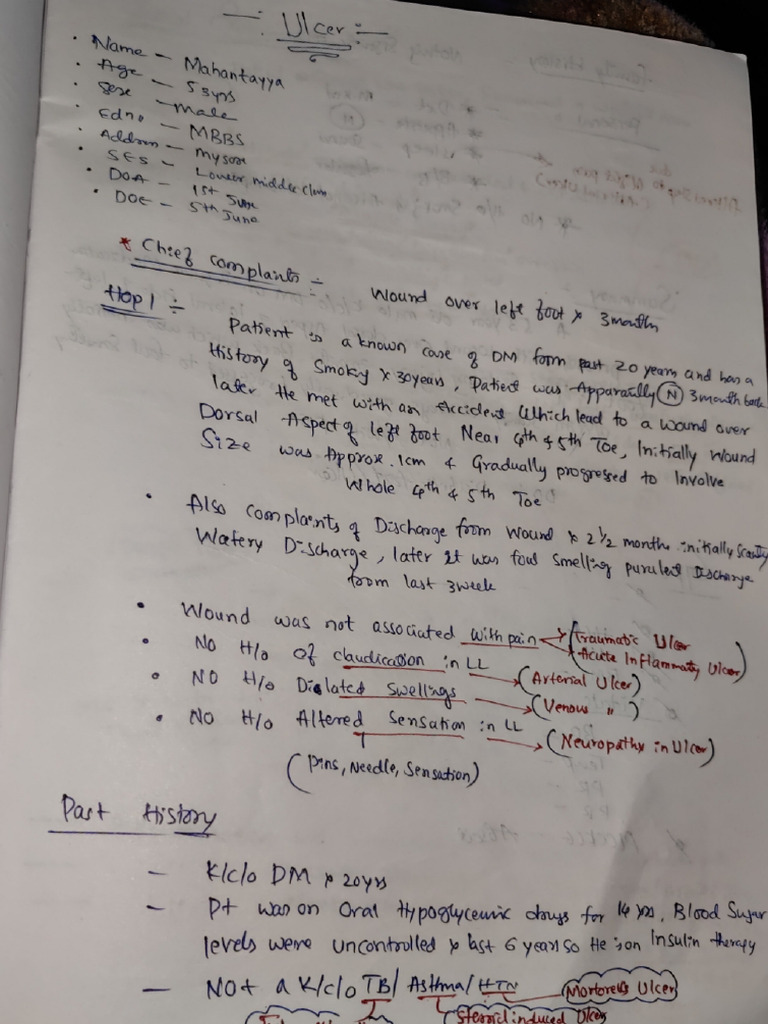 -: Ulcer :-
• Name - Mahantayya
• Age - 53yrs
• Sex - Male
• Edn - MBBS
• Address - Mysore
• SES - Lower middle class
• DOA - 1st June
• DOE - 5th June
* Chief complants :- Wound over left foot x 3month
HOPI :-
Patient is a known case of DM from past 20 years and has a
History of Smoky x 30years, Patient was Apparaully (N) 3month back
later He met with an Accident Which lead to a wound over
Dorsal Aspect of left foot Near 4th & 5th Toe, Initially Wound
Size was Approx. 1cm & Gradually progressed to Involve
Whole 4th & 5th Toe
• Also complaints of Discharge from wound x 2 1/2 months initially Scanty
Watery Discharge, later it was foul smelling purulent Discharge
from last 3week
• Wound was not associated with pain → (Traumatic Ulcer
Acute Inflammaty Ulcer)
• NO H/o of claudication in LL → (Arterial Ulcer)
• NO H/o Dialated Swellings → (Venous " )
• NO H/o Altered Sensation in LL → (Neuropathy in Ulcer)
(Pins, Needle, Sensation)
Past History
- K/c/o DM x 20yrs
- Pt was on Oral Hypoglycemic drugs for 14 yrs, Blood Sugar
levels were uncontrolled x last 6 years so He is on Insulin therapy
- NOt a K/c/o TB/ Asthma/ HTN Mortorells Ulcer
Steroid induced Ulcer